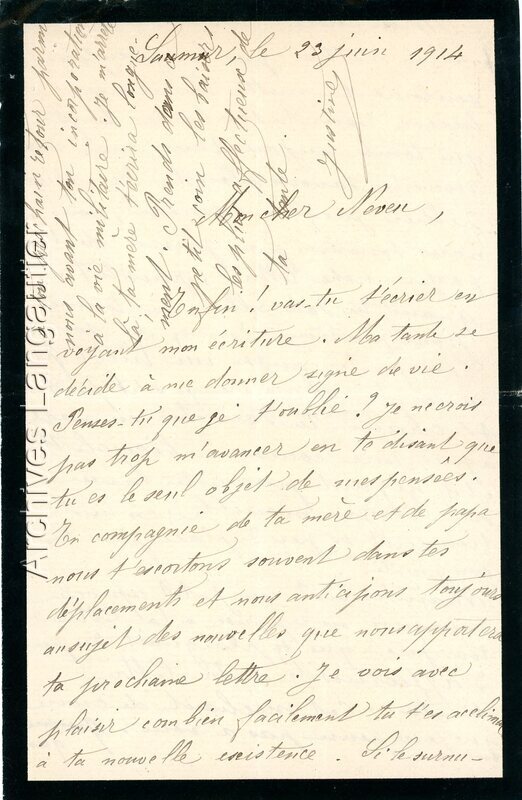 Saumur, le 23 juin 1914
Mon cher Neveu,
Enfin ! vas-tu t'écrier en
voyant mon écriture. Ma tante se
décide à me donner signe de vie.
Penses-tu que je t'oublie ? Je ne crois
pas trop m'avancer en te disant que
tu es le seul objet de mes pensées.
En compagnie de ta mère et de papa
nous t'escortons souvent dans tes
déplacements et nous anticipons toujours
au sujet des nouvelles que nous apportera
ta prochaine lettre. Je vois avec
plaisir combien facilement tu t'es acclimaté
à ta nouvelle existence. Si le surnu-
prochain retour parmi
nous avant ton incorporation
à la vie militaire. Je m'arrête
là, ta mère t'écrira longue-
ment. Prends dans ce
petit coin les baisers
les plus affectueux de
ta tante
Justine
Archives Langautier